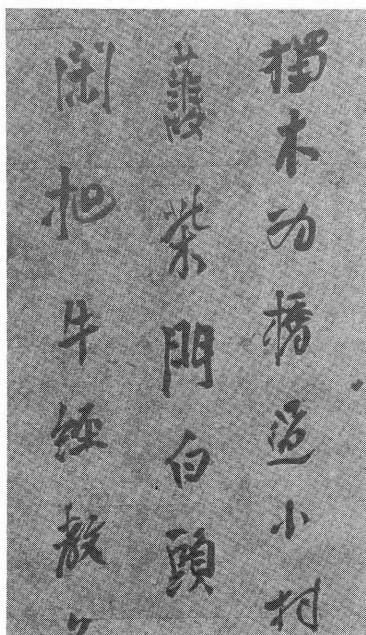 獨木为橋過小村
護柴門白頭
閑把牛經教